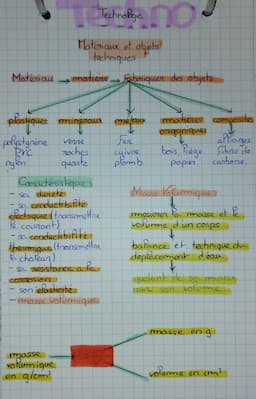 TECHNO
Technologie
Matériaux et objets
techniques
Matériau → matière → Fabriquer des objets
plastiques minéraux métaux matières organiques composite
polystyrène verre fer bois, liège alliages
PVC roches cuivre papier fibre de
nylon quartz plomb carbone.
Caractéristiques :
- sa dureté
- sa conductibilité
électrique (transmettre
le courant)
- sa conductibilité
thermique (transmettre
la chaleur)
- sa résistance à la
corrosion
- son élasticité
- masse volumique
Masse Volumique :
mesurer la masse et le
volume d'un corps
balance et technique du
déplacement d'eau
sa masse
par son volume.
masse en g
masse
volumique
en g/cm³
volume en cm³